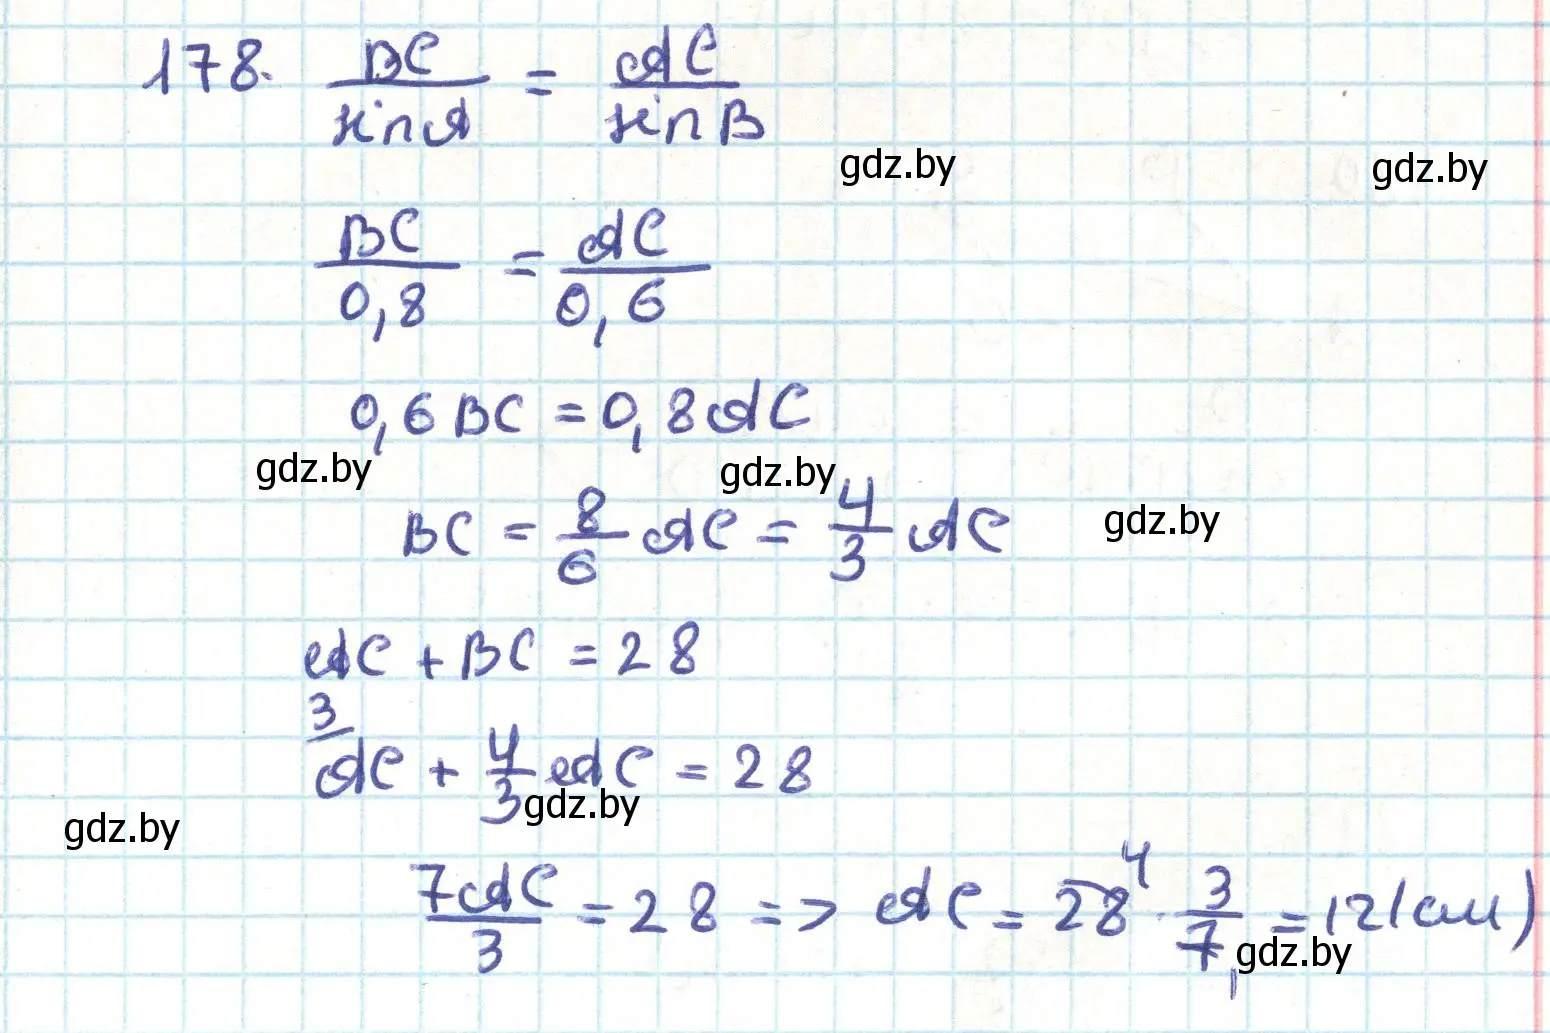 178. BC/sin A = AC/sin B
gdz.by gdz.by
BC/0,8 = AC/0,6
0,6 BC = 0,8 AC
gdz.by gdz.by
BC = 8/6 AC = 4/3 AC gdz.by
AC + BC = 28
3/ AC + 4/3 AC = 28
gdz.by gdz.by
7AC/3 = 28 => AC = 28 4 · 3/7 1 = 12 (см)
gdz.by